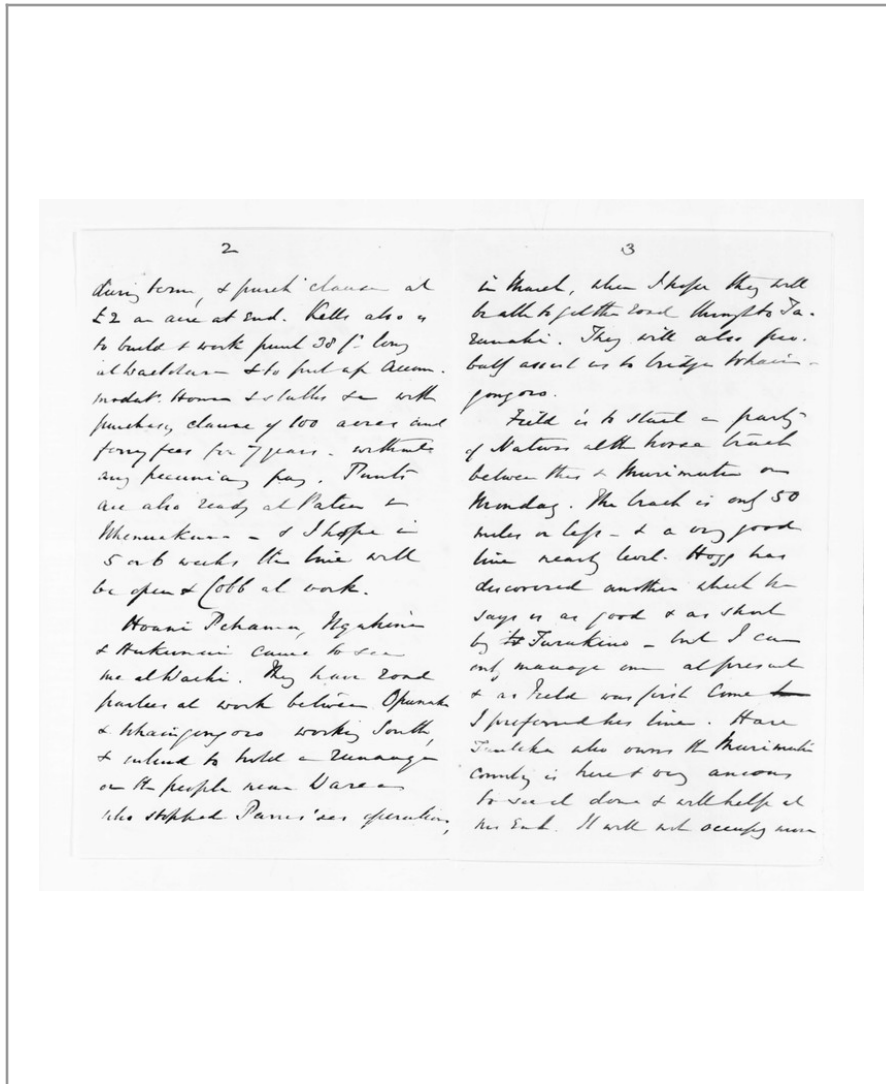 2
during term, & purch^g clause at
£2 an acre at end. Kells also is
to build & work punt 38 f^t long
at Waitotara & to put up Accom-
modat^n House & stables &c with
purchasg clause of 100 acres and
ferry fees for 7 years - without
any pecuniary pay. Punts
are also ready at Patea &
Whenuakura - & I hope in
5 or 6 weeks the line will
be open & Cobb at work.
Hoani Pehama, Ngahina
& Hukunui came to see
me at Waihi. They have road
parties at work between Opunake
& Whaingongoro working South,
& intend to hold a runanga
on the people near Warea
who stopped Parris'ses operations,
3
in March, when I hope they will
be able to get the road through to Ta-
ranaki. They will also pro-
bably assist us to bridge Whain-
gongoro.
Field is to start a party
of Natives at the horse track
between this & Murimutu on
Monday. The track is only 50
miles or less - & a very good
line nearly level. Hogg has
discovered another which he
says is as good & as short
by Turakino - but I can
only manage one at present
& as Field was first come
I preferred his line. Hare
who owns the Murimutu
country is here & very anxious
to see it done & will help at
his End. It will not occupy more